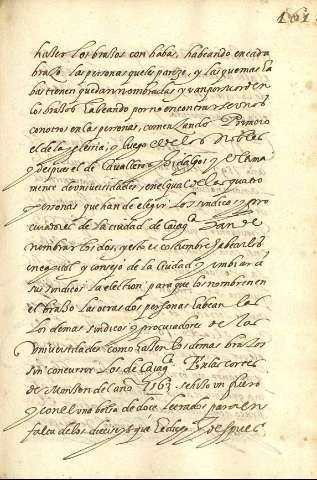 161
hasser los brassos con habas, habeando en cada
brazo las personas que les pareze, y las que mas ha
bas tienen quedan nombradas y van por orden
los brassos habeando por no encontrarse unos
con otros en las personas, comenzando Primero
el de la Iglesia; y luego el de los Nobles
y despues el de Cavalleros Hidalgos y ultima
mente de universidades, en el qual de las quatro
personas que han de elegir. Los sindicos y pro
curadores de la ciudad de Carag.ª han de
nombrar los dos, y esto es costumbre hablarlo
en capitol y consejo de la Ciudad y embiar a
sus sindicos la election, para que los nombren en
el brasso las otras dos personas habean las
los demas sindicos y procuradores de las
universidades como hassen los demas brassos
sin concurrir los de Carag.ª En las cortes
de Monsson del año 1563 se hiso un fuero
y con el una bolsa de doce letrados para en
falta de los dieciseys que ha dicho despues